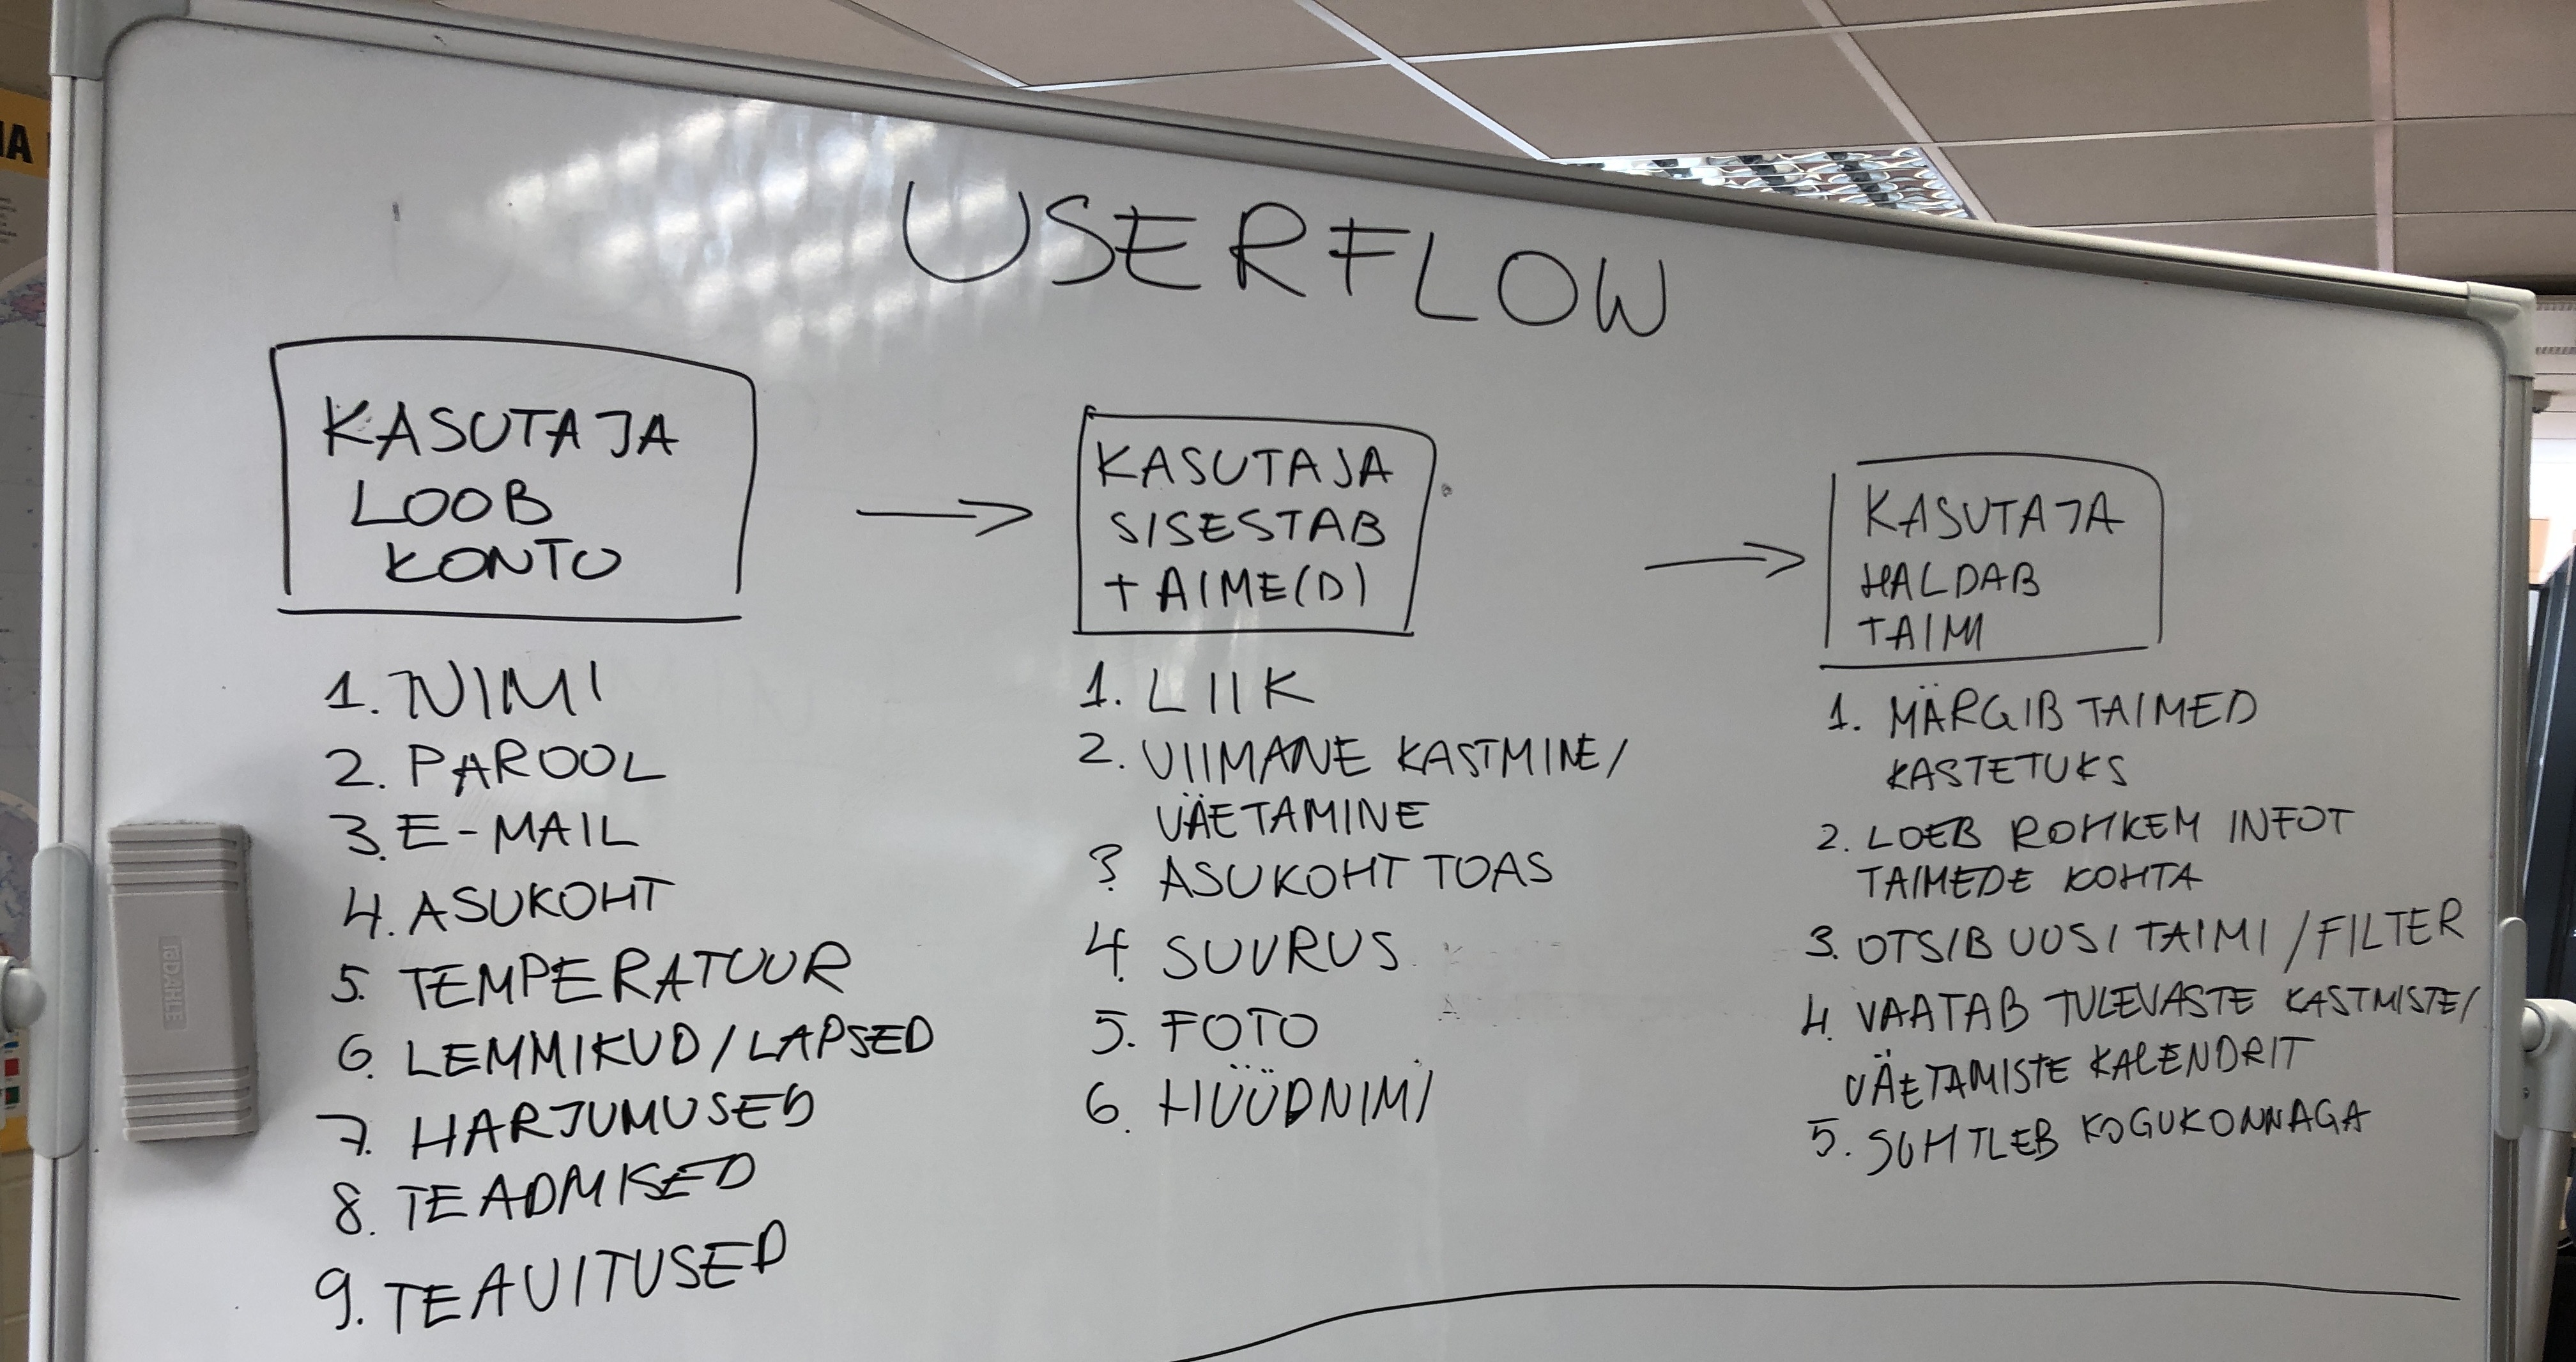 USERFLOW
KASUTAJA
LOOB
KONTO
1. NIMI
2. PAROOL
3. E-MAIL
4. ASUKOHT
5. TEMPERATUUR
6. LEMMIKUD/LAPSED
7. HARJUMUSED
8. TEADMISED
9. TEAVITUSED
KASUTAJA
SISESTAB
TAIME(D)
1. LIIK
2. VIIMANE KASTMINE/
VÄETAMINE
? ASUKOHT TOAS
4. SUURUS
5. FOTO
6. HÜÜDNIMI
KASUTAJA
HALDAB
TAIMI
1. MÄRGIB TAIMED
KASTETUKS
2. LOEB ROHKEM INFOT
TAIMEDE KOHTA
3. OTSIB UUSI TAIMI/FILTER
4. VAATAB TULEVASTE KASTMISTE/
VÄETAMISTE KALENDRIT
5. SUHTLEB KOGUKONNAGA
DAHLE